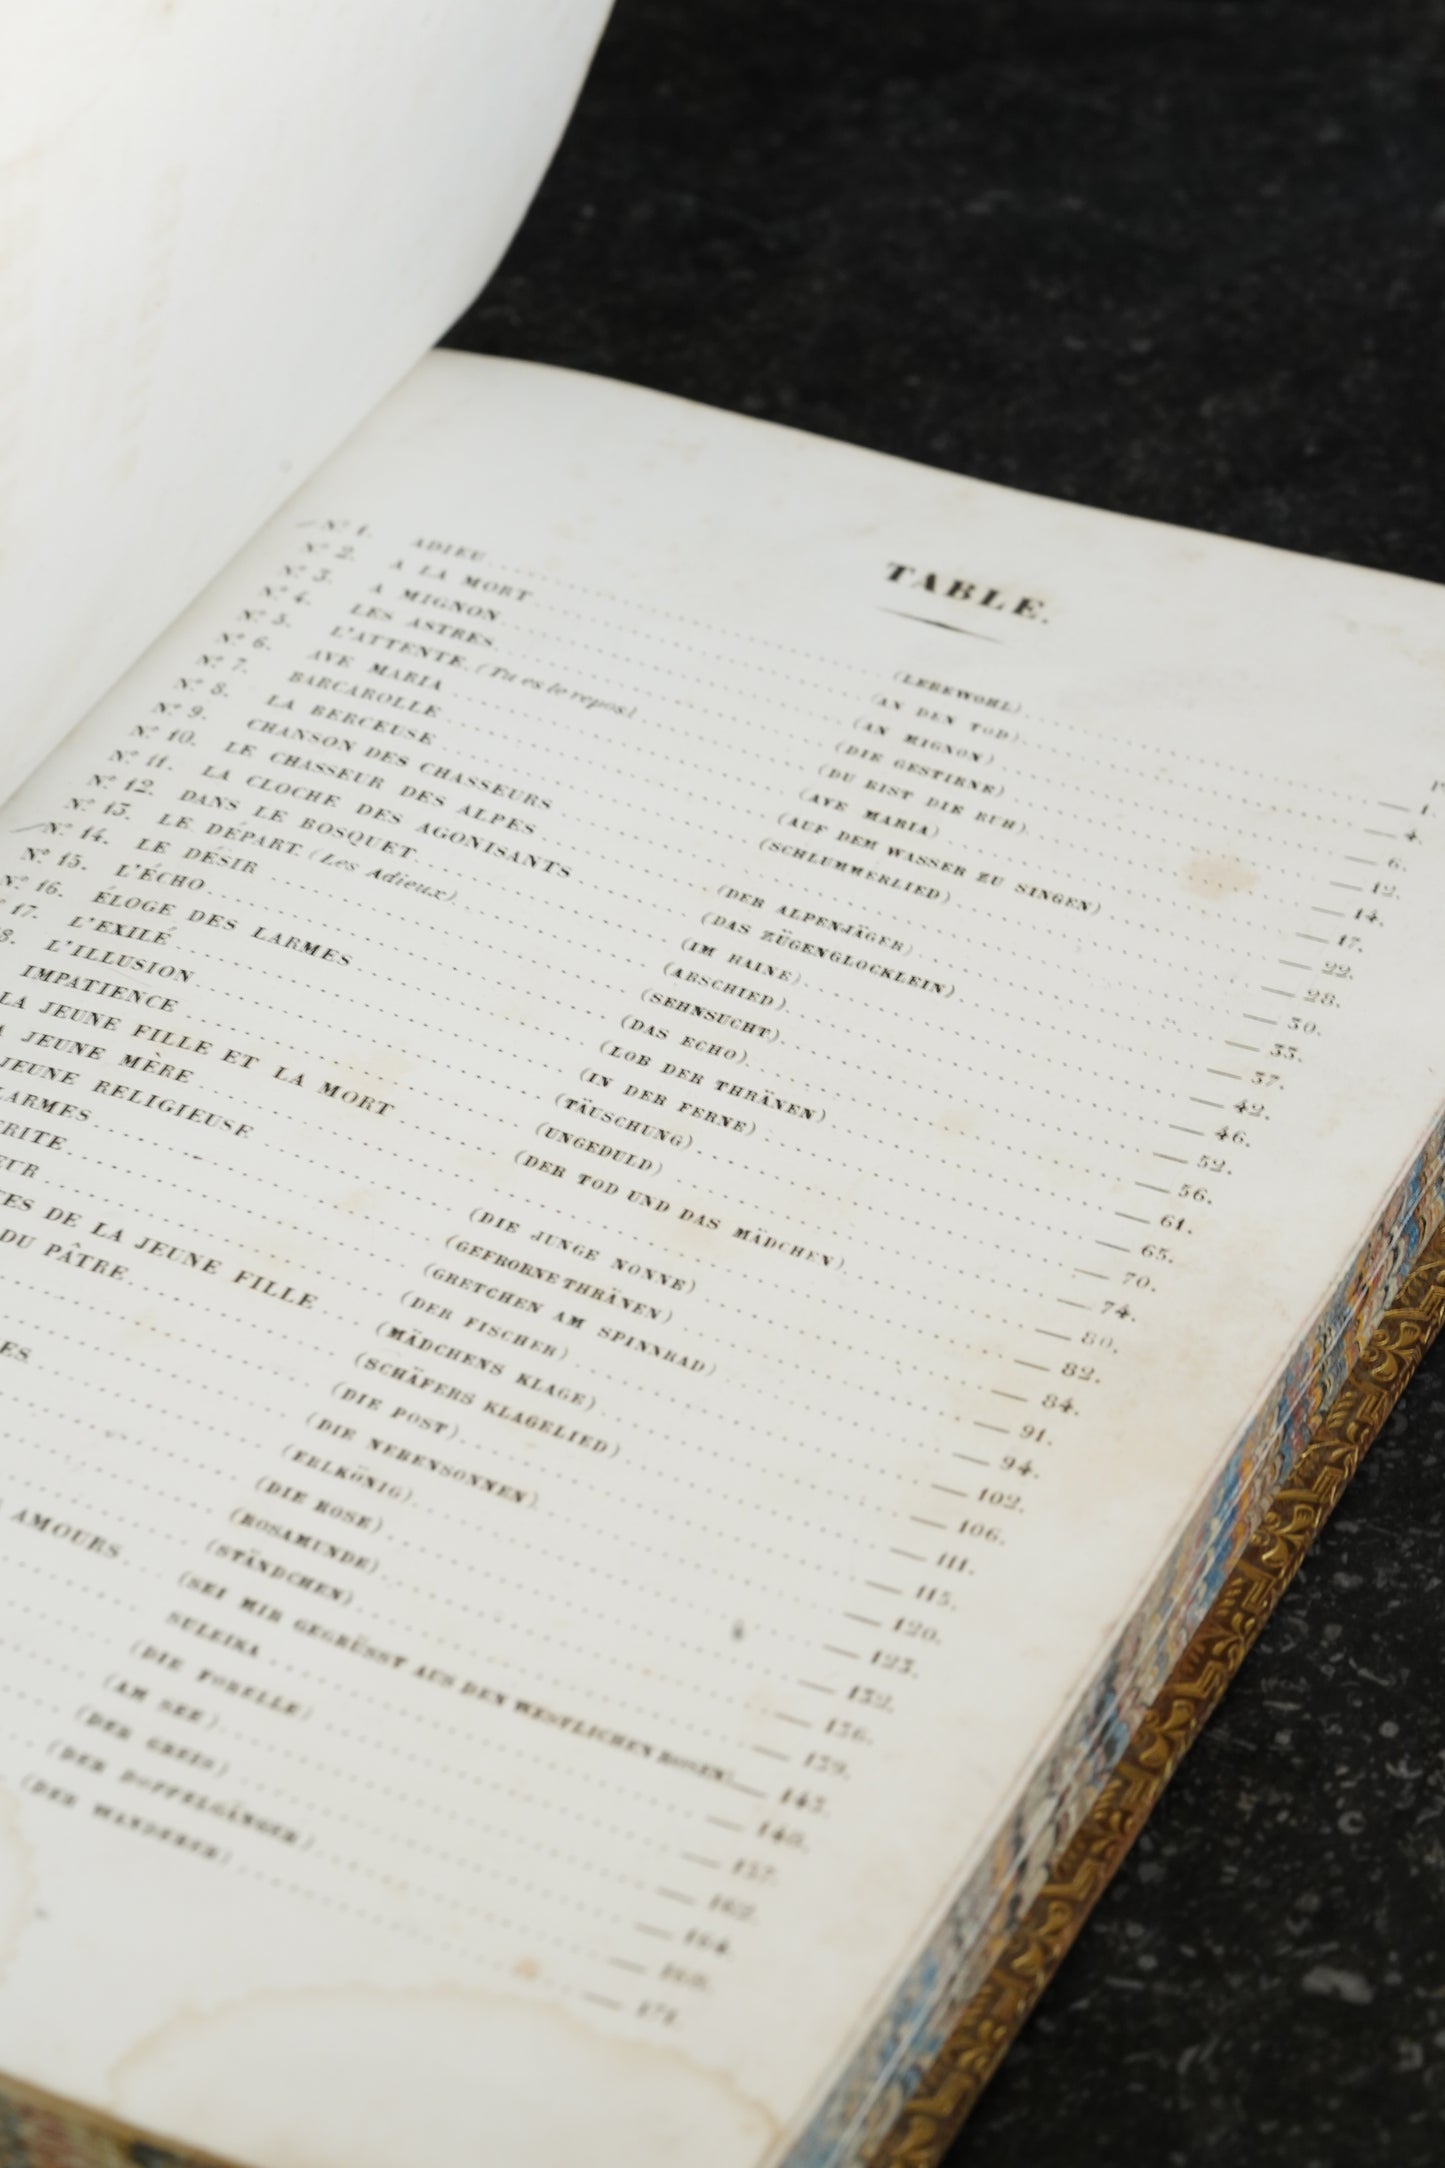 TABLE.
Nº 1. ADIEU (LEBEWOHL) 1.
Nº 2. A LA MORT (AN DEN TOD) 4.
Nº 3. A MIGNON (AN MIGNON) 6.
Nº 4. LES ASTRES (DIE GESTIRNE) 12.
Nº 5. L'ATTENTE. (Tu es le repos) (DU BIST DIE RUH) 14.
Nº 6. AVE MARIA (AVE MARIA) 17.
Nº 7. BARCAROLLE (AUF DEM WASSER ZU SINGEN) 22.
Nº 8. LA BERCEUSE (SCHLUMMERLIED) 28.
Nº 9. CHANSON DES CHASSEURS 30.
Nº 10. LE CHASSEUR DES ALPES (DER ALPENJÄGER) 33.
Nº 11. LA CLOCHE DES AGONISANTS (DAS ZÜGENGLOCKLEIN) 37.
Nº 12. DANS LE BOSQUET (IM HAINE) 42.
Nº 13. LE DÉPART. (Les Adieux) (ABSCHIED) 46.
Nº 14. LE DÉSIR (SEHNSUCHT) 52.
Nº 15. L'ÉCHO (DAS ECHO) 56.
Nº 16. ÉLOGE DES LARMES (LOB DER THRÄNEN) 61.
17. L'EXILÉ (IN DER FERNE) 65.
8. L'ILLUSION (TÄUSCHUNG) 70.
IMPATIENCE (UNGEDULD) 74.
LA JEUNE FILLE ET LA MORT (DER TOD UND DAS MÄDCHEN) 80.
A JEUNE MÈRE 82.
JEUNE RELIGIEUSE (DIE JUNGE NONNE) 84.
LARMES (GEFRORNE THRÄNEN) 91.
ERITE (GRETCHEN AM SPINNRAD) 94.
EUR (DER FISCHER) 102.
ES DE LA JEUNE FILLE (MÄDCHENS KLAGE) 106.
DU PÂTRE (SCHÄFERS KLAGELIED) 111.
(DIE POST) 115.
ES (DIE NEBENSONNEN) 120.
(ERLKÖNIG) 123.
(DIE ROSE) 132.
(ROSAMUNDE) 136.
(STÄNDCHEN) 139.
AMOURS (SEI MIR GEGRÜSST AUS DEN WESTLICHEN ROSEN) 143.
SULEIKA
(DIE FORELLE) 157.
(AM SEE) 162.
(DER GREIS) 164.
(DER DOPPELGÄNGER) 168.
(DER WANDERER) 171.